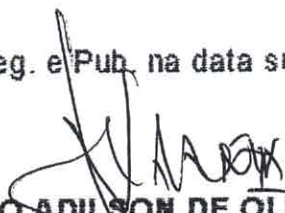 eg. e Pub. na data s
O ADILSON DE OL